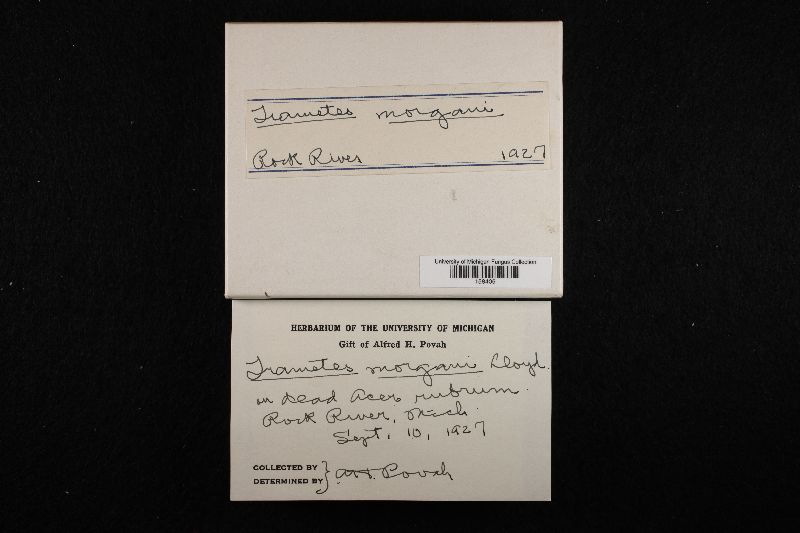 Trametes morgani
Rock River 1927
University of Michigan Fungus Collection
HERBARIUM OF THE UNIVERSITY OF MICHIGAN
Gift of Alfred H. Povah
Trametes morgani Lloyd.
on dead Acer rubrum.
Rock River, Mich.
Sept. 10, 1927
COLLECTED BY
DETERMINED BY } A.H. Povah